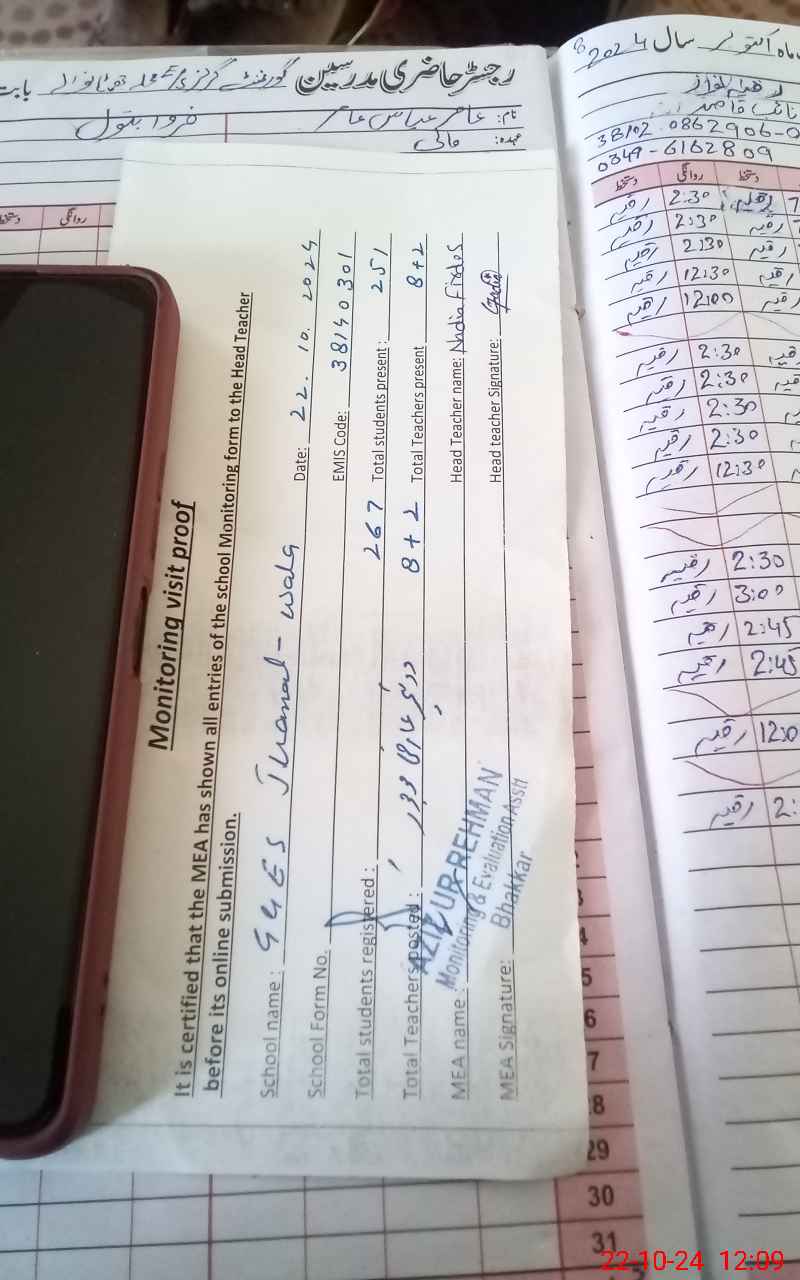 رجسٹر حاضری مدرسین
بابت
نام: عامر عباس عامر
عہدہ: مالی
ماہ اکتوبر سال 2024
نائب قاصد
0349-6162809
دستخط
روانگی
دستخط
دستخط
روانگی
رقیہ 2:30
رقیہ 2:30
رقیہ 2:30
رقیہ 12:30
رقیہ 12:00
رقیہ 2:30
رقیہ 2:30
رقیہ 2:30
رقیہ 2:30
رقیہ 12:30
رقیہ 2:30
رقیہ 3:00
رقیہ 2:45
رقیہ 2:45
رقیہ 12:0
رقیہ 2:
Monitoring visit proof
It is certified that the MEA has shown all entries of the school Monitoring form to the Head Teacher
before its online submission.
School name : GGES Date: 22. 10. 2024
School Form No. EMIS Code: 38140301
Total students registered : 267 Total students present : 251
Total Teachers posted : 8+2 Total Teachers present 8+2
MEA name : Head Teacher name: Nadia Firdos
MEA Signature: Head teacher Signature:
AZIZ UR REHMAN
Monitoring & Evaluation Asstt
Bhakkar
4
5
6
7
28
29
30
31
22-10-24 12:09